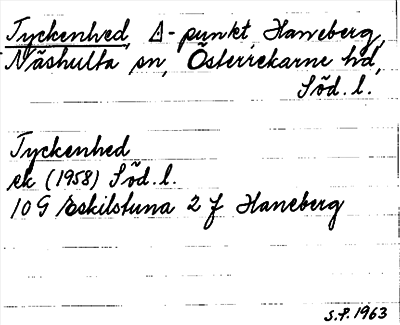 Tyckenhed, Δ-punkt, Haneberg,
Näshulta sn, Österrekarne hd,
Söd. l.
Tyckenhed
ek (1958) Söd. l.
10 G Eskilstuna 2 f Haneberg
S.P. 1963